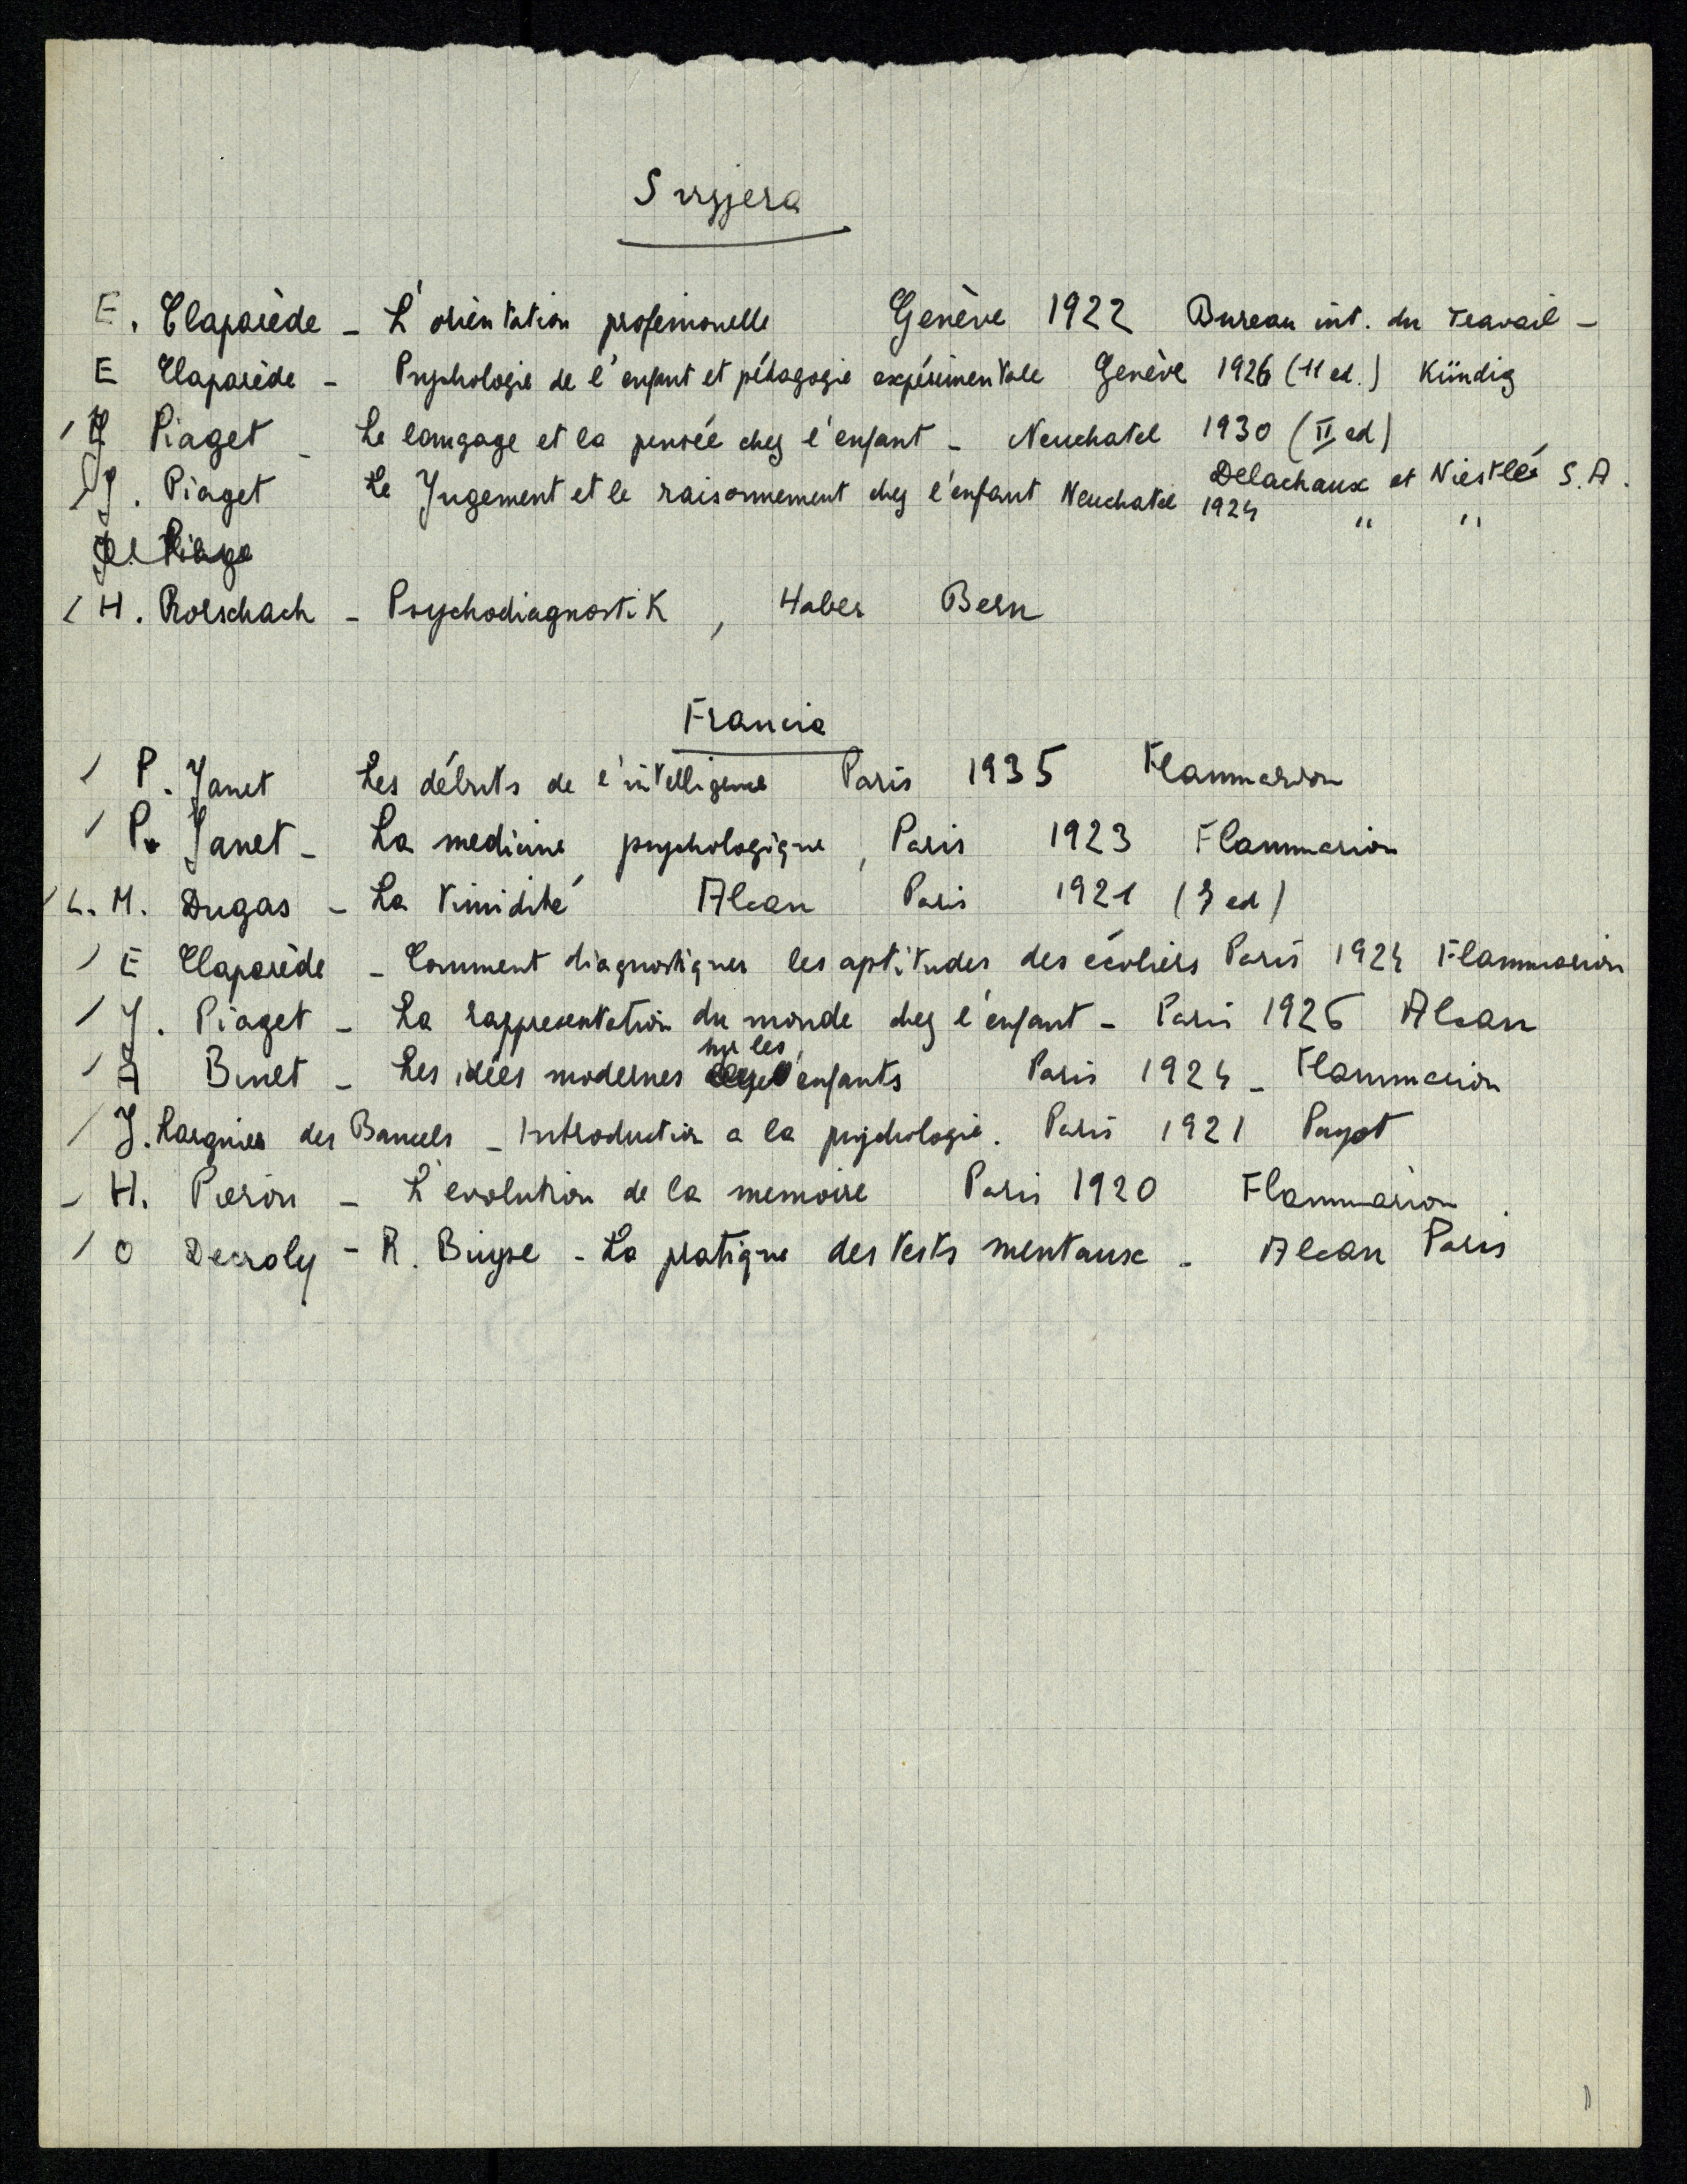 Svizzera
E. Claparède - L'orientation professionelle Genève 1922 Bureau int. du Travail -
E Claparède - Psychologie de l'enfant et pédagogie expérimentale Genève 1926 (11 ed.) Kündig
/ J Piaget - Le langage et la pensée chez l'enfant - Neuchatel 1930 (II ed)
Delachaux et Niestlé S.A.
/ J. Piaget Le Jugement et le raisonnement chez l'enfant Neuchatel 1924 " "
J. Piage
/ H. Rorschach - Psychodiagnostik, Huber Bern
Francia
/ P. Janet Les débuts de l'intelligence Paris 1935 Flammarion
/ P. Janet - La medicine psychologique, Paris 1923 Flammarion
/ L. M. Dugas - La timidité Alcan Paris 1921 ( ed)
/ E Claparède - Comment diagnostiquer les aptitudes des écoliers Paris 1924 Flammarion
/ J. Piaget - La rappresentation du monde chez l'enfant - Paris 1926 Alcan
/ A Binet - Les idées modernes sur les enfants Paris 1924 - Flammarion
/ J. Larguier des Bancels - Introduction a la psychologie. Paris 1921 Payot
- H. Pieron - L'evolution de la memoire Paris 1920 Flammarion
/ O Decroly - R. Buyse - La pratique des tests mentaux - Alcan Paris